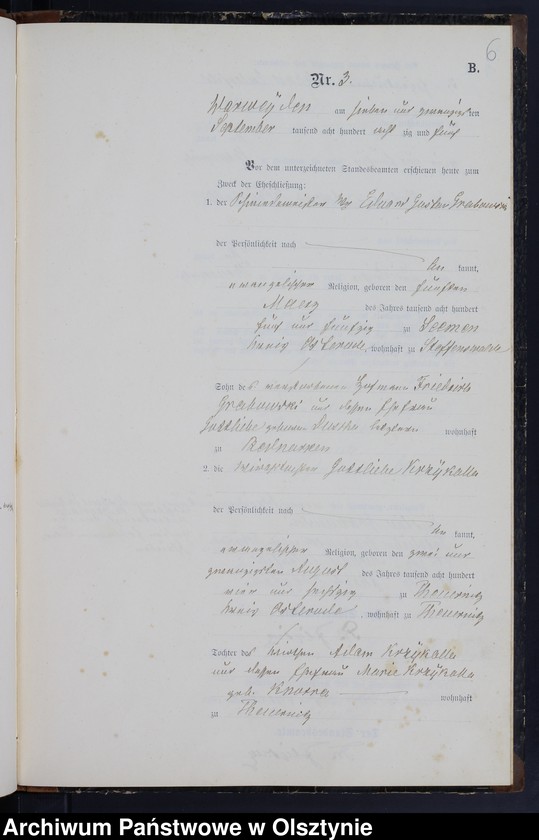 6
B.
Nr. 3.
am sieben und zwanzigsten
September tausend acht hundert acht zig und fünf
Vor dem unterzeichneten Standesbeamten erschienen heute zum
Zweck der Eheschließung:
1. der Eduard Gustav Grabowski
der Persönlichkeit nach
be kannt,
evangelischer Religion, geboren den fünften
Maerz des Jahres tausend acht hundert
fünf und fünfzig zu Seemen
Kreis Osterode, wohnhaft zu Steffenswalde
Sohn des verstorbenen Friedrich
Grabowski und dessen Ehefrau
Gottliebe geborenen letztere wohnhaft
zu Bednarken
2. die Gottliebe Krzykalla
der Persönlichkeit nach
be kannt,
evangelischer Religion, geboren den zwei und
zwanzigsten August des Jahres tausend acht hundert
vier und sechszig zu Theuernitz
Kreis Osterode, wohnhaft zu Theuernitz
Tochter des Wirthen Adam Krzykalla
und dessen Ehefrau Marie Krzykalla
geb. wohnhaft
zu Theuernitz
Archiwum Państwowe w Olsztynie